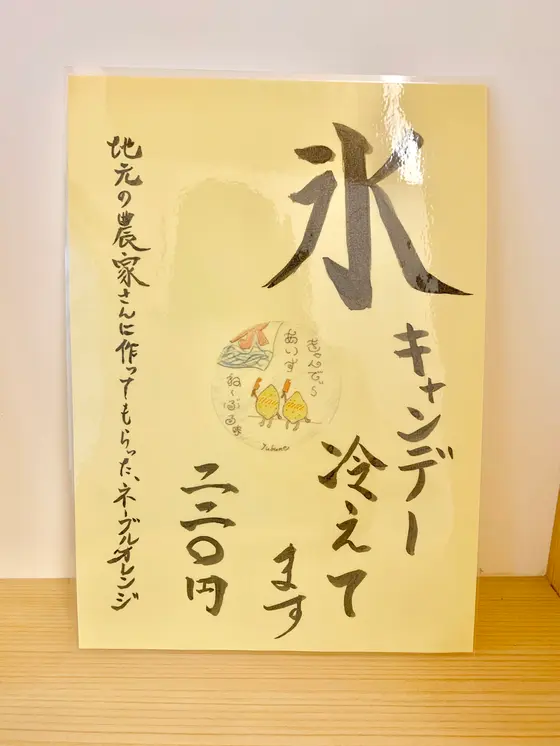 氷
キャンデー
冷えて
ます
きゃんでぃ
あいす
二二〇円
地元の農家さんに作ってもらった、ネーブルオレンジ